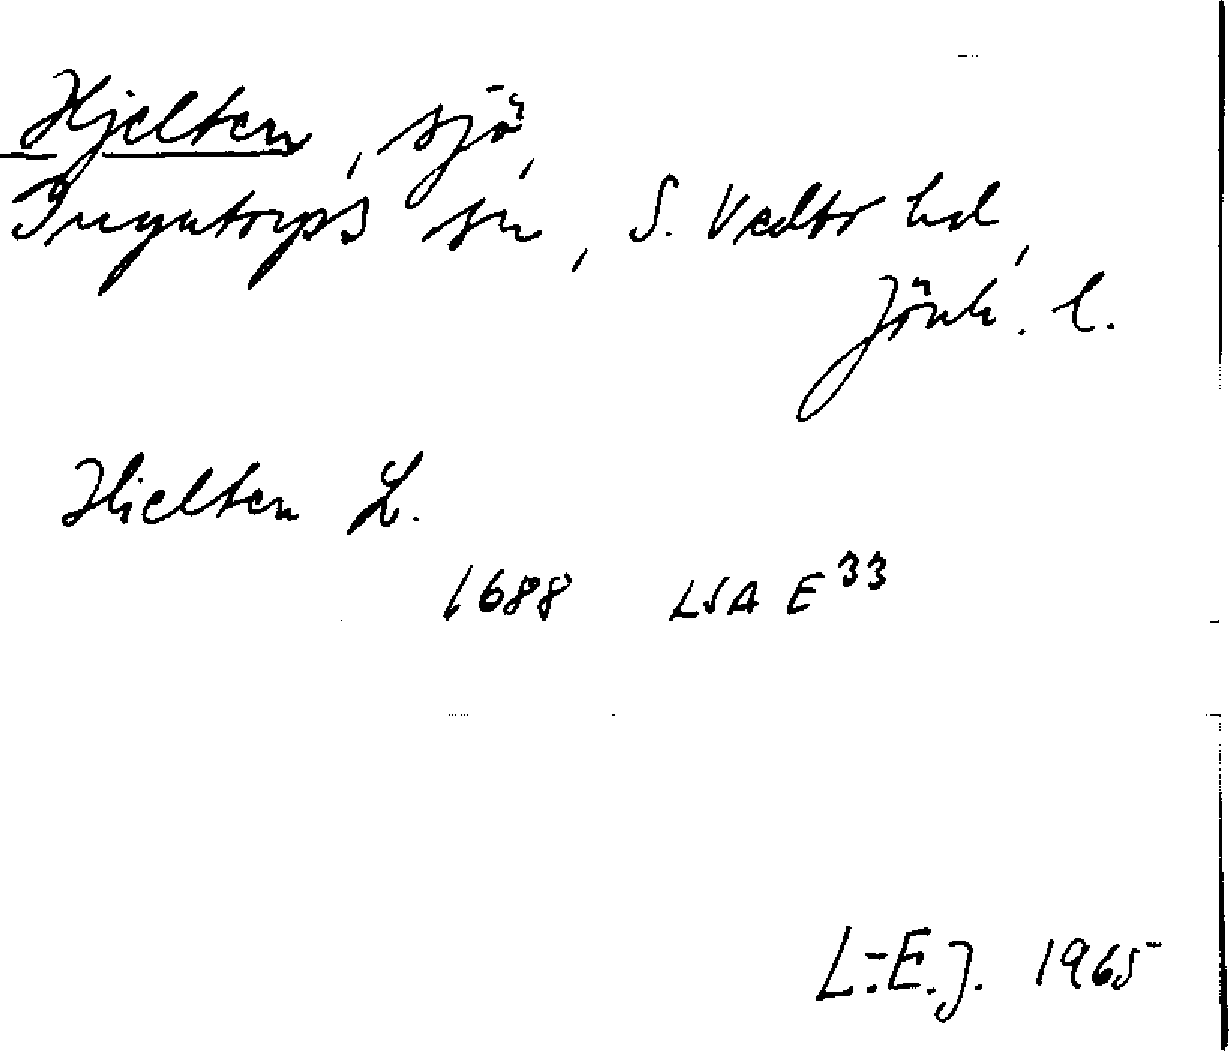 Hjelten, sjö,
Ingatorps sn, S. Vedbo hd,
Jönk. l.
Hielten L.
1688 LSA E 33
L.-E.J. 1965